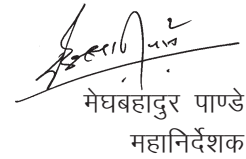 मेघबहादुर पाण्डे
महानिर्देशक